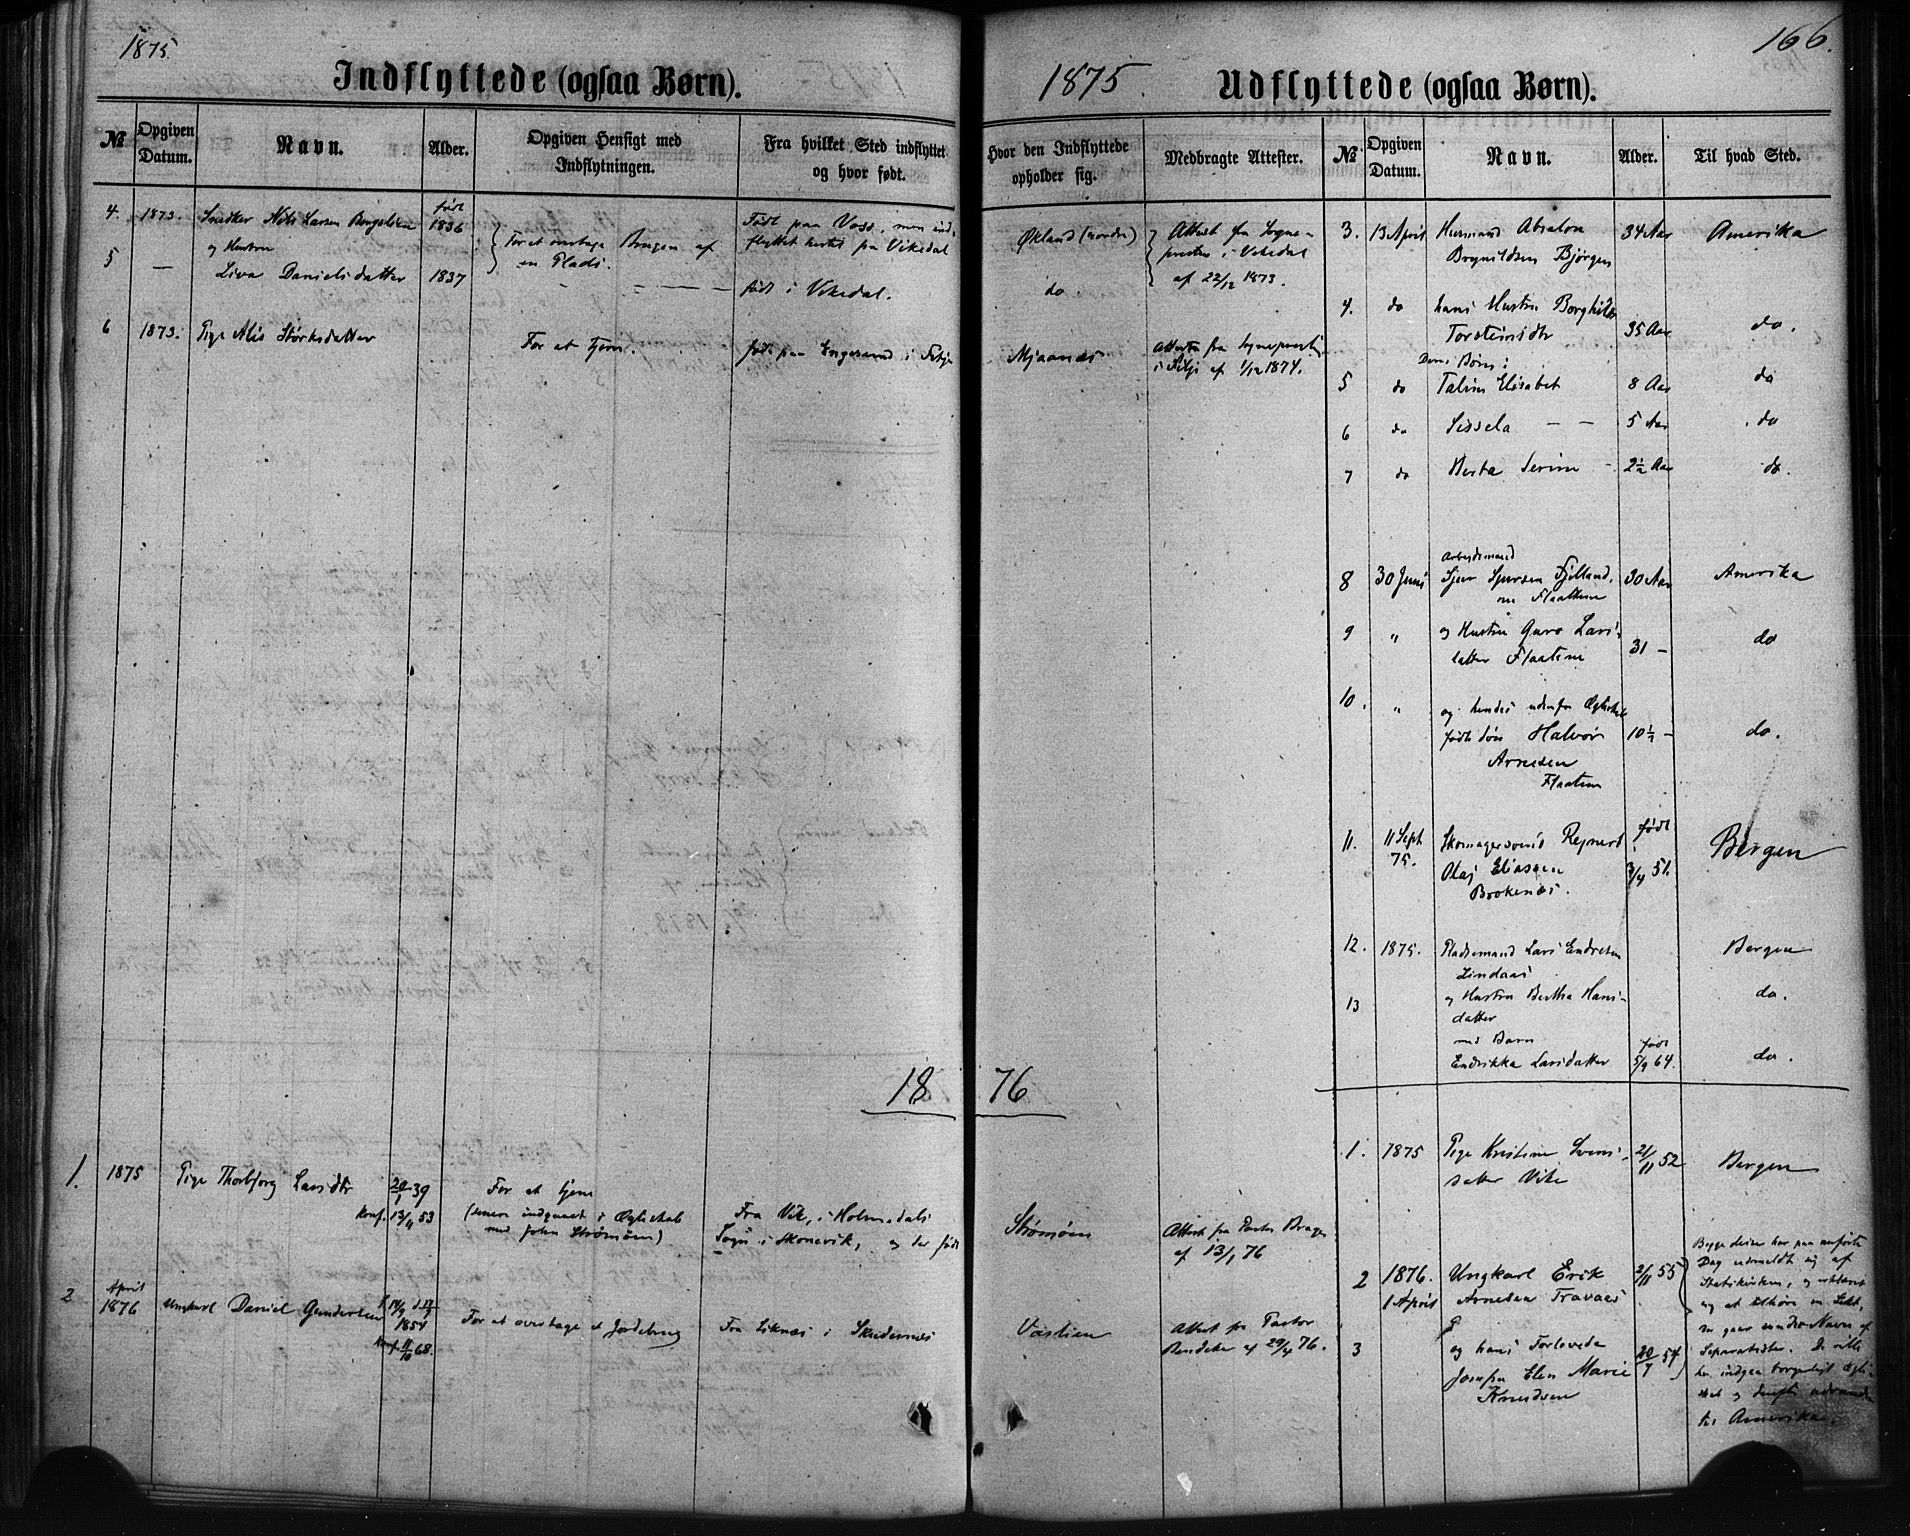 1875.
Indflyttede (ogsaa Børn).
№
Opgiven Datum.
Navn.
Alder.
Opgiven Hensigt med Indflytningen.
Fra hvilket Sted indflyttet og hvor født.
4. 1873. Snedker Nils Larsen født 1836
og Hustru
5 — Liva Danielsdatter 1837
For at overtage Brugen af
en Plads.
Født paa Voss, men ind-
flyttet hertil fra Vikedal
født i Vikedal.
6 1873. Pige Alis Størksdatter
For at tjene.
født paa Engesund i Fitje
18
1. 1875 Pige Thorbjørg Larsdtr 20/1 39
Konf. 13/11 53
For at tjene
(senere indgaaet i Ægteskab
med John Strømøen)
Fra Vik, i Holmedals
Sogn i Skonevik, og der født
2 April 1876 Ungkarl Daniel Gundersen
1854
Konf. 11/10 68.
For at overtage et Jordebrug
Fra Liknæs i Skudesnæs
1875.
Udflyttede (ogsaa Børn).
166.
Hvor den Indflyttede opholder sig.
Medbragte Attester.
№
Opgiven Datum.
Navn.
Alder.
Til hvad Sted.
Økland (nordre)
do
Attest fra Sogne-
presten i Vikedal
af 22/12 1873.
Mjaanes
Attest fra Sognepresten
i Fitje af 1/12 1874.
3. 13 April Hermand Absalon 34 Aar Amerika
Brynildsen Bjørgen
4. do hans Hustru Borghilde
Torsteinsdtr 35 Aar do.
Deres Børn:
5 do Taline Elisabet 8 Aar do
6 do Sissela — — 5 Aar do
7 do Berta Serine — 2½ Aar do.
Arbeidsmand
8 30 Juni Sjur Sjursen Fjelland, 30 Aar Amerika
nu Flaateim
9 " og Hustru Guro Lars-
datter Flaatein 31 — do
10. " og hendes udenfor Ægteskab
fødte Søn Halvor 10½ — do.
Arnesen
Flaatein
11. 11 Sept 75. Skomagersvend Rejnert født
Olaj Eliassen 3/4 51. Bergen
Brokenes.
12. 1875. Pladsemand Lars Endresen Bergen
Lindaas
13 og Hustru Bertha Hans- do.
datter
med Barn født
Endrikka Larsdatter 5/9 64. do.
76
1. 1875 Pige Kristine Svens- 21/11 52 Bergen
datter Vike
Strømøen
Attest fra Pastor
af 13/1 76
2 1876. 1 April Ungkarl Erik 2/11 55
Arnesen Travaas
3 og hans Forlovede
Elen Marie 20/7 54
Knudsen
Begge disse har paa anførte
Dag udmeldt sig af
Statskirken, og erklæret
sig at tilhøre en Sekt,
der gaar under Navn af
Separatister. De ville
her indgaa borgerligt Ægte-
skab og derefter udvandre
til Amerika.
Vaslien
Attest fra Pastor
af 29/4 76.